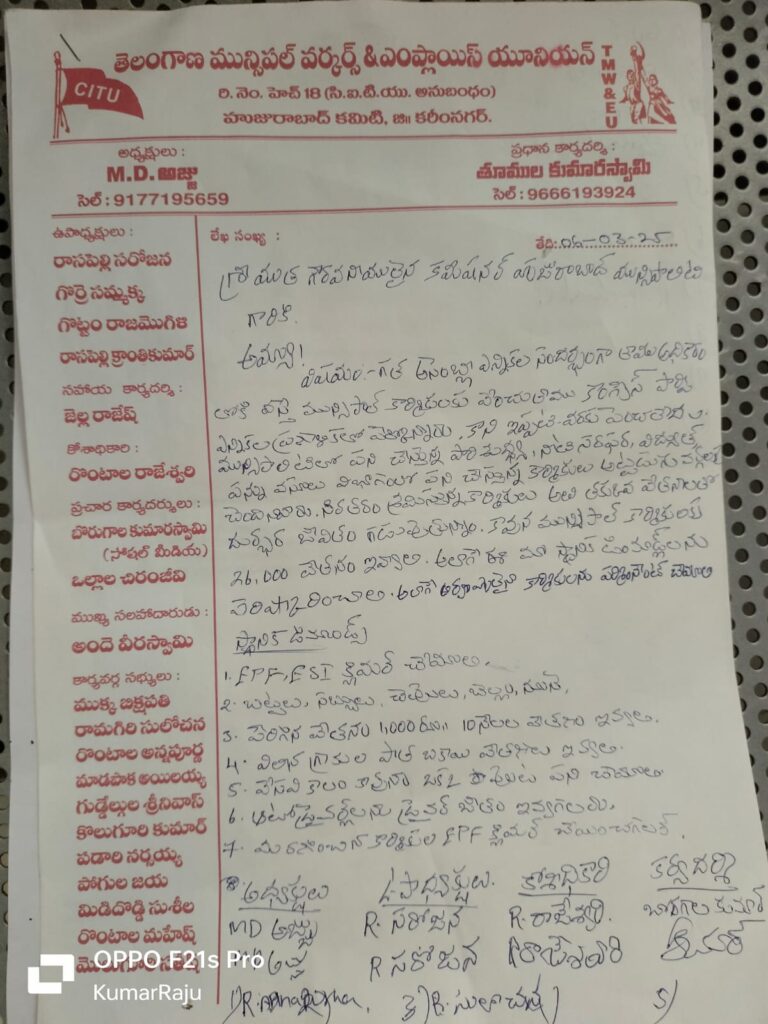 తెలంగాణ మున్సిపల్ వర్కర్స్ & ఎంప్లాయిస్ యూనియన్
CITU
TMW&EU
రి. నెం. హెచ్ 18 (సి.ఐ.టి.యు. అనుబంధం)
హుజురాబాద్ కమిటి, జి॥ కరీంనగర్.
అధ్యక్షులు :
M.D. అజ్జు
సెల్ : 9177195659
ప్రధాన కార్యదర్శి :
తూముల కుమారస్వామి
సెల్ : 9666193924
ఉపాధ్యక్షులు :
రాసపెల్లి సరోజన
గొర్రె సమ్మక్క
గొట్టం రాజమొగిళి
రాసపెల్లి క్రాంతికుమార్
సహాయ కార్యదర్శి :
జెల్ల రాజేష్
కోశాధికారి :
రొంటాల రాజేశ్వరి
ప్రచార కార్యదర్శులు :
బొరుగాల కుమారస్వామి
(సోషల్ మీడియా)
ఒల్లాల చిరంజీవి
ముఖ్య సలహాదారుడు :
అందె వీరస్వామి
కార్యవర్గ సభ్యులు :
ముక్క బిక్షపతి
రామగిరి సులోచన
రొంటాల అన్నపూర్ణ
మాడపాక అయిలయ్య
గుడ్డేల్గుల శ్రీనివాస్
కొలుగూరి కుమార్
పడారి నర్సయ్య
పోగుల జయ
మిడిదొడ్డి సుశీల
రొంటాల మహేష్
లేఖ సంఖ్య :
తేది: 04-03-25
గౌరవనీయులైన కమీషనర్ హుజురాబాద్ మున్సిపాలిటి
గారికి.
అయ్యా!
విషయం:- గత అసెంబ్లీ ఎన్నికల సందర్భంగా తాము అధికారం
లోకి వస్తే మున్సిపాల్ కార్మికులకు పెంచుతాము కాంగ్రెస్ పార్టి
ఎన్నికల ప్రణాళికలో పేర్కొన్నారు. కాని ఇప్పటి వరకు పెంచలేదు.
మున్సిపాలిటిలో పని చేస్తున్న పారిశుధ్య, నీటి సరఫర, విద్యుత్,
పన్ను వసూలు విభాగంలో పని చేస్తున్న కార్మికులు అట్టడుగు వర్గాలకు
చెందినవారు. నిరంతరం శ్రమిస్తున్న కార్మికులు అతి తక్కువ వేతనాలతో
దుర్భర జీవితం గడుపుతున్నాం. కావున మున్సిపాల్ కార్మికులకు
26,000 వేతనం ఇవ్వాలి. అలాగే ఈ మా స్థానిక డిమాండ్లను
పరిష్కరించాలి. అలాగే అర్హులైన కార్మికులను పర్మినెంట్ చేయాలి
స్థానిక డిమాండ్స్
1. EPF, ESI క్లియర్ చేయాలి.
2. బట్టలు, సబ్బులు, చెప్పులు, బెల్లం, నూనె,
3. పెరిగిన వేతనం 1,000 రూ॥ 10 నెలల వేతనం ఇవ్వాలి.
4. విలీన గ్రామాల పాత బకాయి వేతనాలు ఇవ్వాలి.
5. వేసవి కాలం కావునా ఒక పూట పని చేయాలి
6. ఆటోడ్రైవర్లను డ్రైవర్ జీతం ఇవ్వగలరు.
7. మరణించిన కార్మికుల EPF క్లియర్ చేయించగలరు.
అధ్యక్షులు ఉపాధ్యక్షులు. కోశాధికారి
MD అజ్జు R. సరోజన R. రాజేశ్వరి.
R సరోజన
R. సులోచన
OPPO F21s Pro
KumarRaju